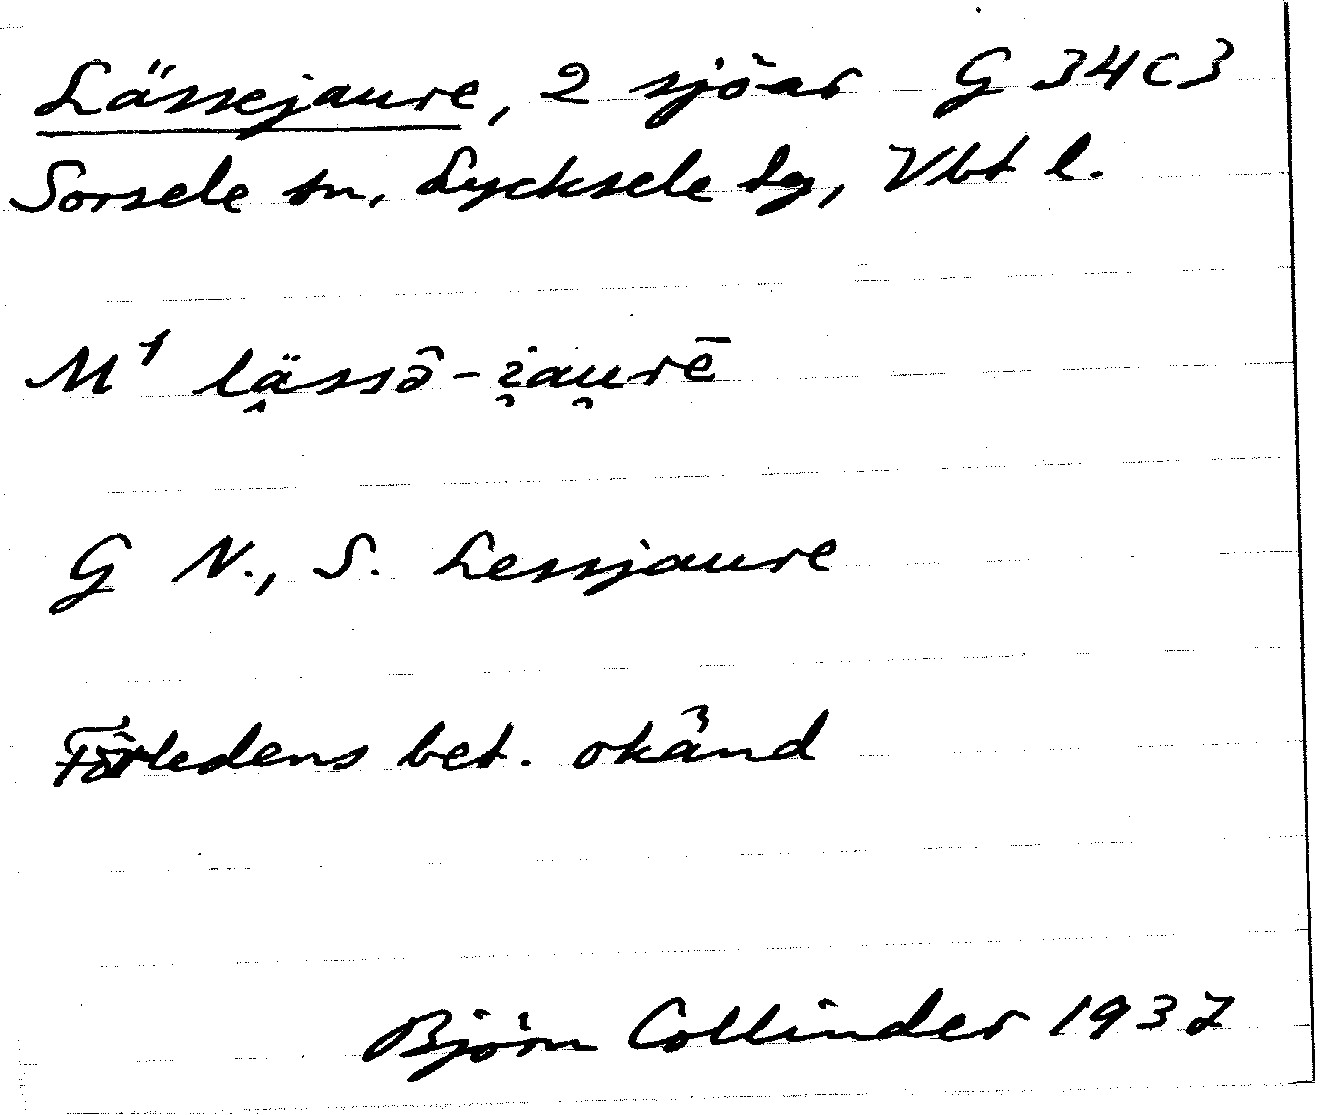 Lässejaure, 2 sjöar G 34 C 3
Sorsele sn, Lycksele lg, Vbt l.
M¹ lä̭ssō̂-i̯au̯rē
G N., S. Lessjaure
Förledens bet. okänd
Björn Collinder 1937